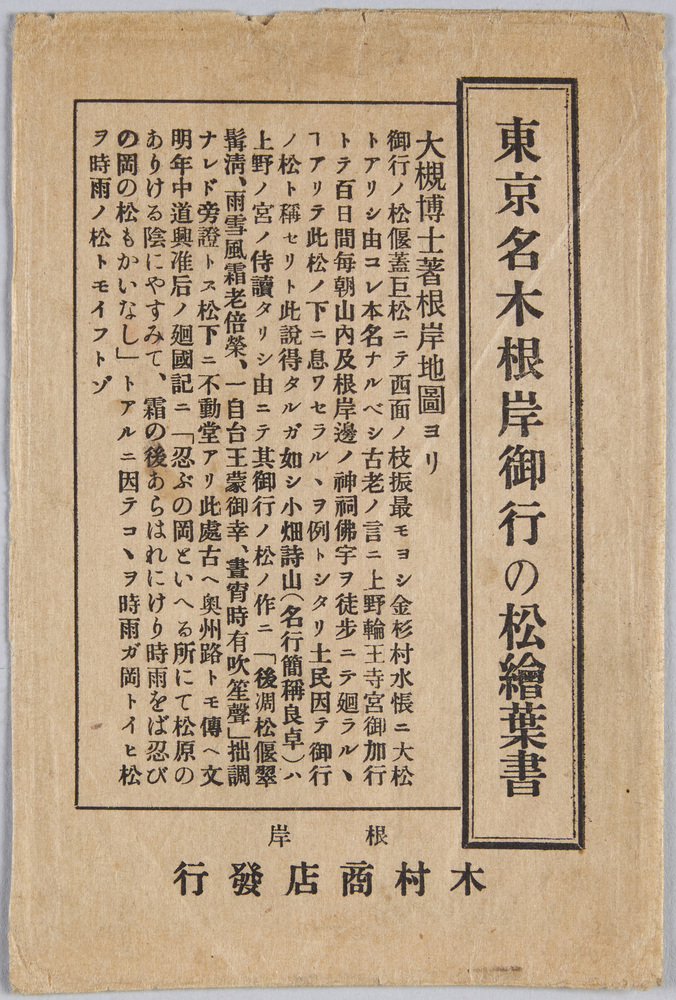 東京名木根岸御行の松繪葉書
大槻博士著根岸地圖ヨリ
御行ノ松偃蓋巨松ニテ西面ノ枝振最モヨシ金杉村水帳ニ大松
トアリシ由コレ本名ナルベシ古老ノ言ニ上野輪王寺宮御加行
トテ百日間毎朝山內及根岸邊ノ神祠佛宇ヲ徒步ニテ廻ラルヽ
ヿアリテ此松ノ下ニ息ワセラルヽヲ例トシタリ土民因テ御行
ノ松ト稱セリト此說得タルガ如シ小畑詩山(名行簡稱良卓)ハ
上野ノ宮ノ侍讀タリシ由ニテ其御行ノ松ノ作ニ「後凋松偃翠
髯淸、雨雪風霜老倍榮、一自台王蒙御幸、晝宵時有吹笙聲」拙調
ナレド旁證トス松下ニ不動堂アリ此處古ヘ奧州路トモ傳ヘ文
明年中道興准后ノ廻國記ニ「忍ぶの岡といへる所にて松原の
ありける陰にやすみて、霜の後あらはれにけり時雨をば忍び
の岡の松もかいなし」トアルニ因テコヽヲ時雨ガ岡トイヒ松
ヲ時雨ノ松トモイフトゾ
根岸
木村商店發行